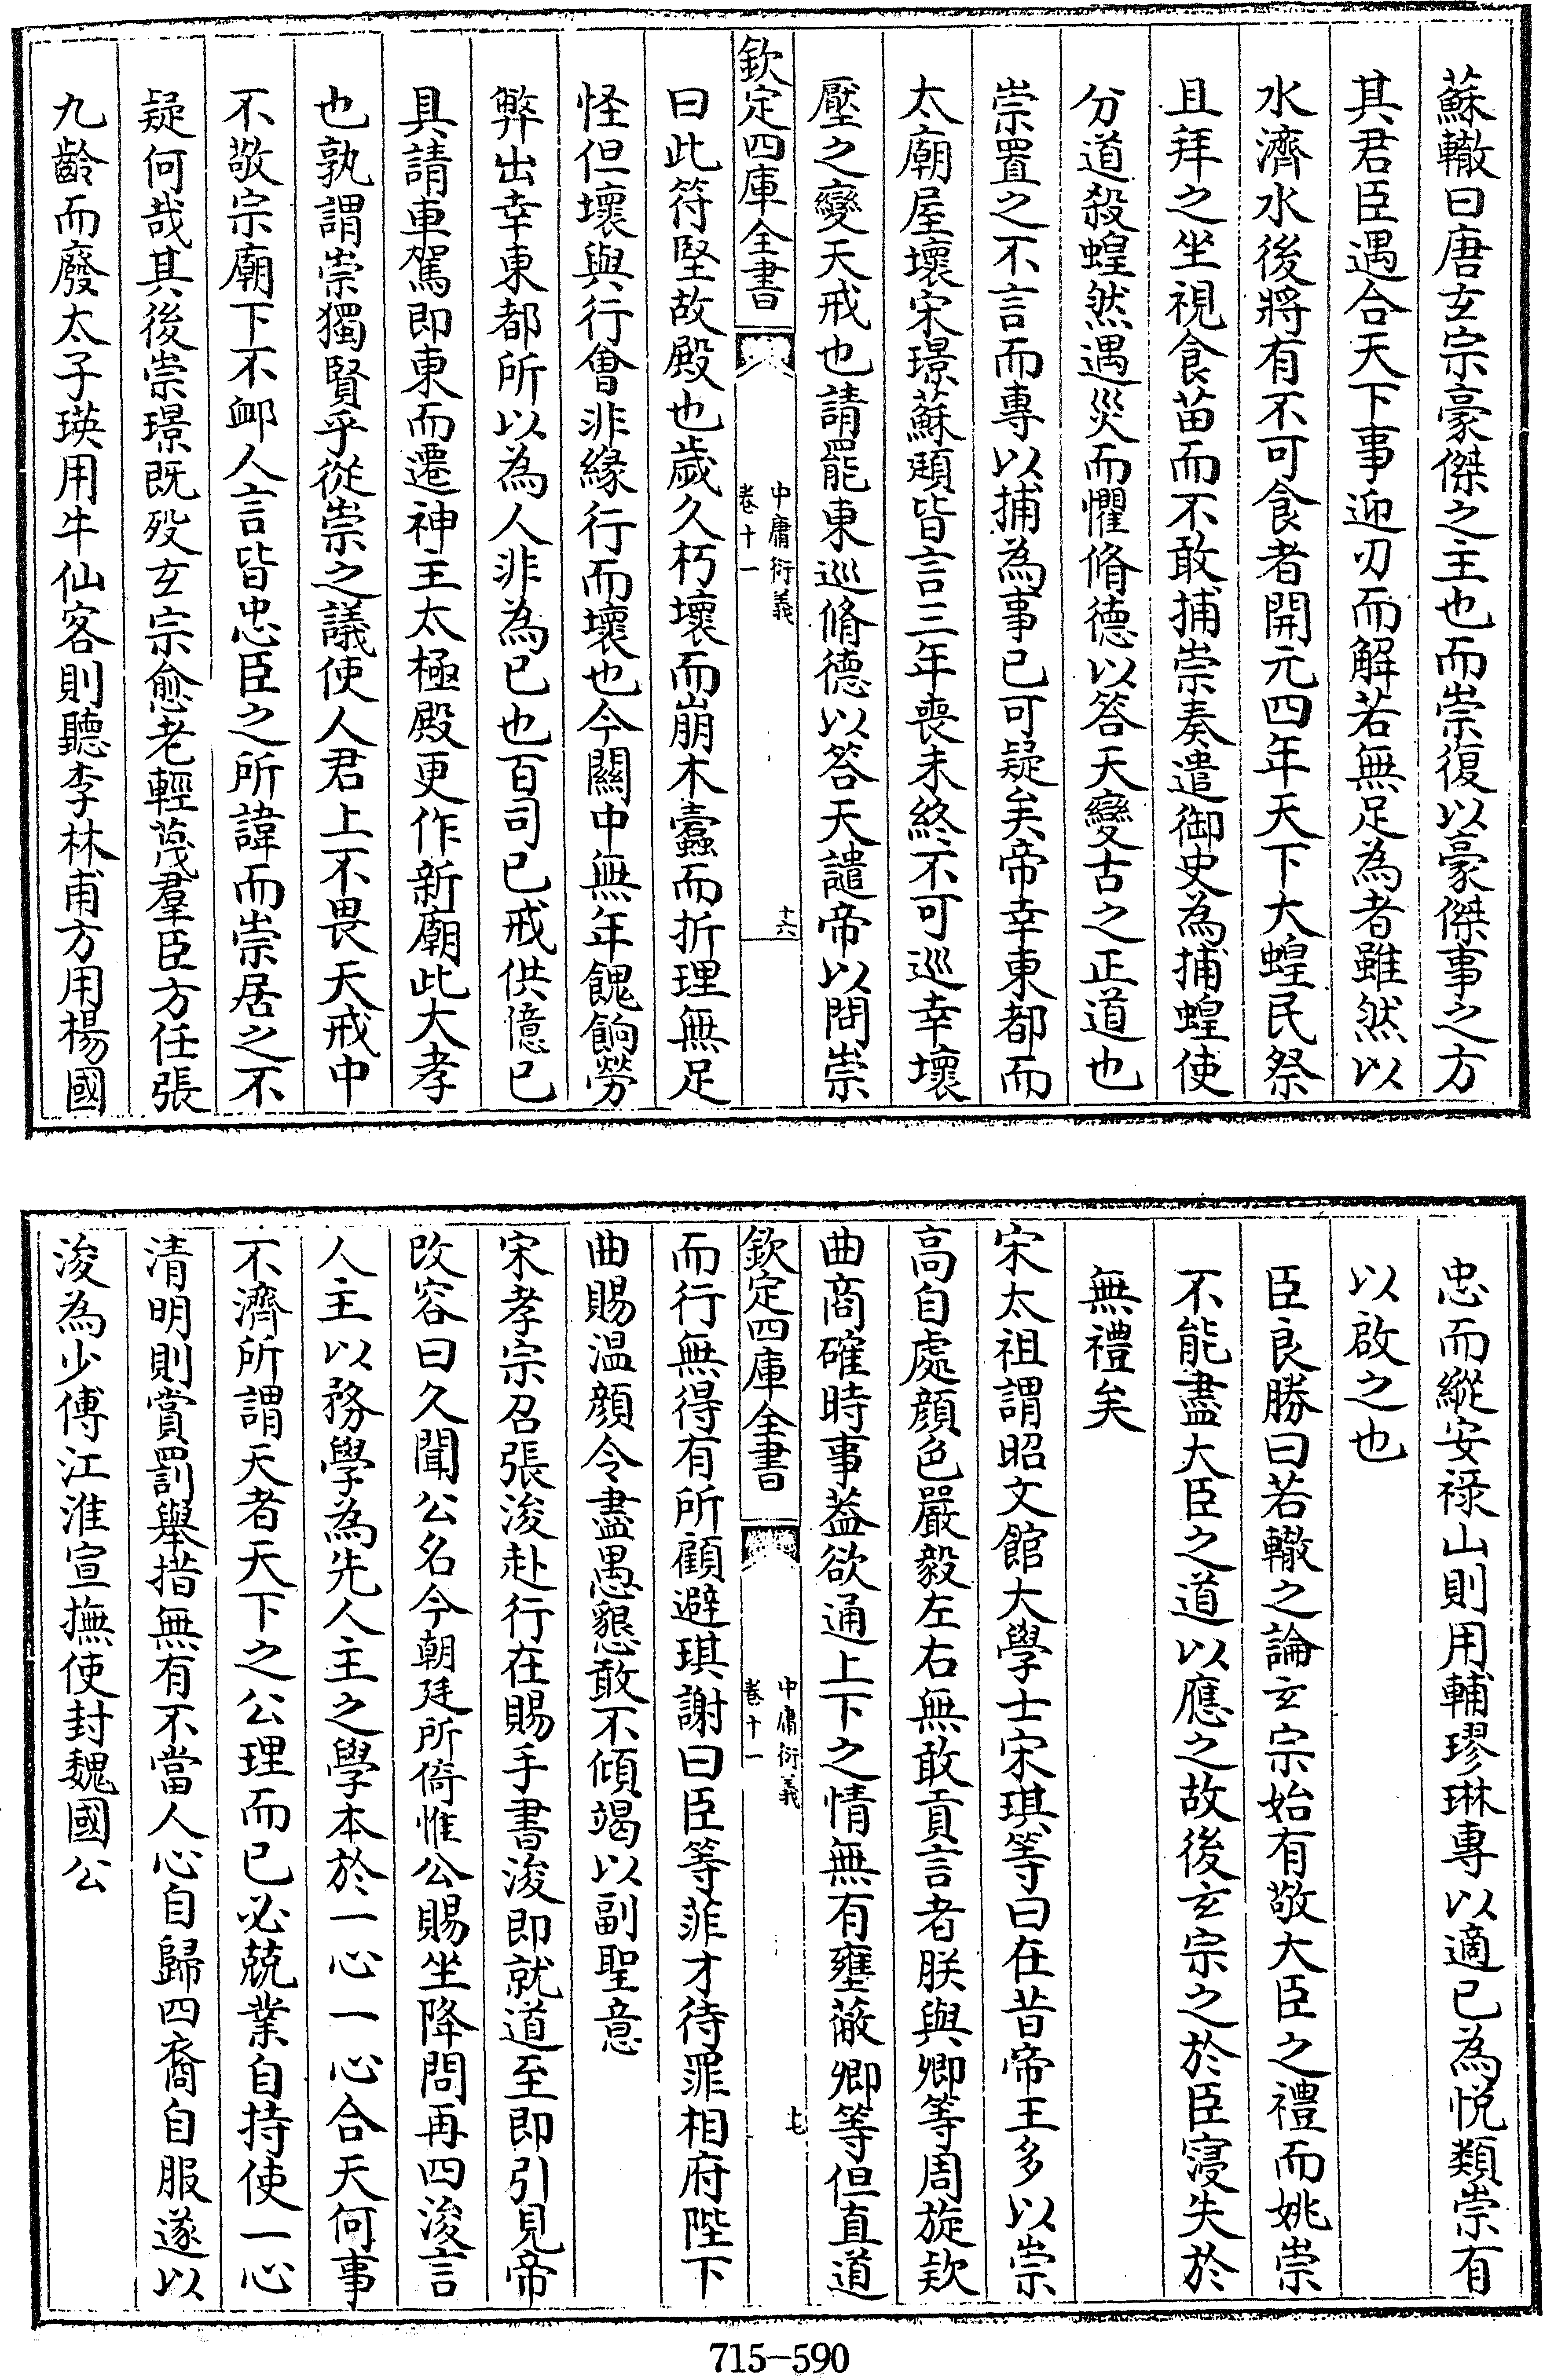 蘇轍曰唐玄宗豪傑之主也而崇復以豪傑事之方
其君臣遇合天下事迎刃而解若無足為者雖然以
水濟水後將有不可食者開元四年天下大蝗民祭
且拜之坐視食苗而不敢捕崇奏遣御史為捕蝗使
分道殺蝗然遇災而懼脩德以答天變古之正道也
崇置之不言而專以捕為事已可疑矣帝幸東都而
太廟屋壞宋璟蘇頲皆言三年喪未終不可巡幸壞
壓之變天戒也請罷東巡脩德以答天譴帝以問崇
欽定四庫全書
中庸衍義
卷十一
十六
曰此符堅故殿也歲久朽壞而崩木蠹而折理無足
怪但壞與行會非緣行而壞也今關中無年餽餉勞
弊出幸東都所以為人非為已也百司已戒供億已
具請車駕即東而遷神主太極殿更作新廟此大孝
也孰謂崇獨賢乎從崇之議使人君上不畏天戒中
不敬宗廟下不卹人言皆忠臣之所諱而崇居之不
疑何哉其後崇璟既歿玄宗愈老輕蔑羣臣方任張
九齡而廢太子瑛用牛仙客則聽李林甫方用楊國
忠而縱安祿山則用輔璆琳專以適已為悅類崇有
以啟之也
臣良勝曰若轍之論玄宗始有敬大臣之禮而姚崇
不能盡大臣之道以應之故後玄宗之於臣寖失於
無禮矣
宋太祖謂昭文館大學士宋琪等曰在昔帝王多以崇
高自處顔色嚴毅左右無敢貢言者朕與卿等周旋欵
曲商確時事葢欲通上下之情無有壅蔽卿等但直道
欽定四庫全書
中庸衍義
卷十一
十七
而行無得有所顧避琪謝曰臣等菲才待罪相府陛下
曲賜温顔令盡愚懇敢不傾竭以副聖意
宋孝宗召張浚赴行在賜手書浚即就道至即引見帝
改容曰久聞公名今朝廷所倚惟公賜坐降問再四浚言
人主以務學為先人主之學本於一心一心合天何事
不濟所謂天者天下之公理而已必兢業自持使一心
清明則賞罰舉措無有不當人心自歸四裔自服遂以
浚為少傅江淮宣撫使封魏國公
715-590